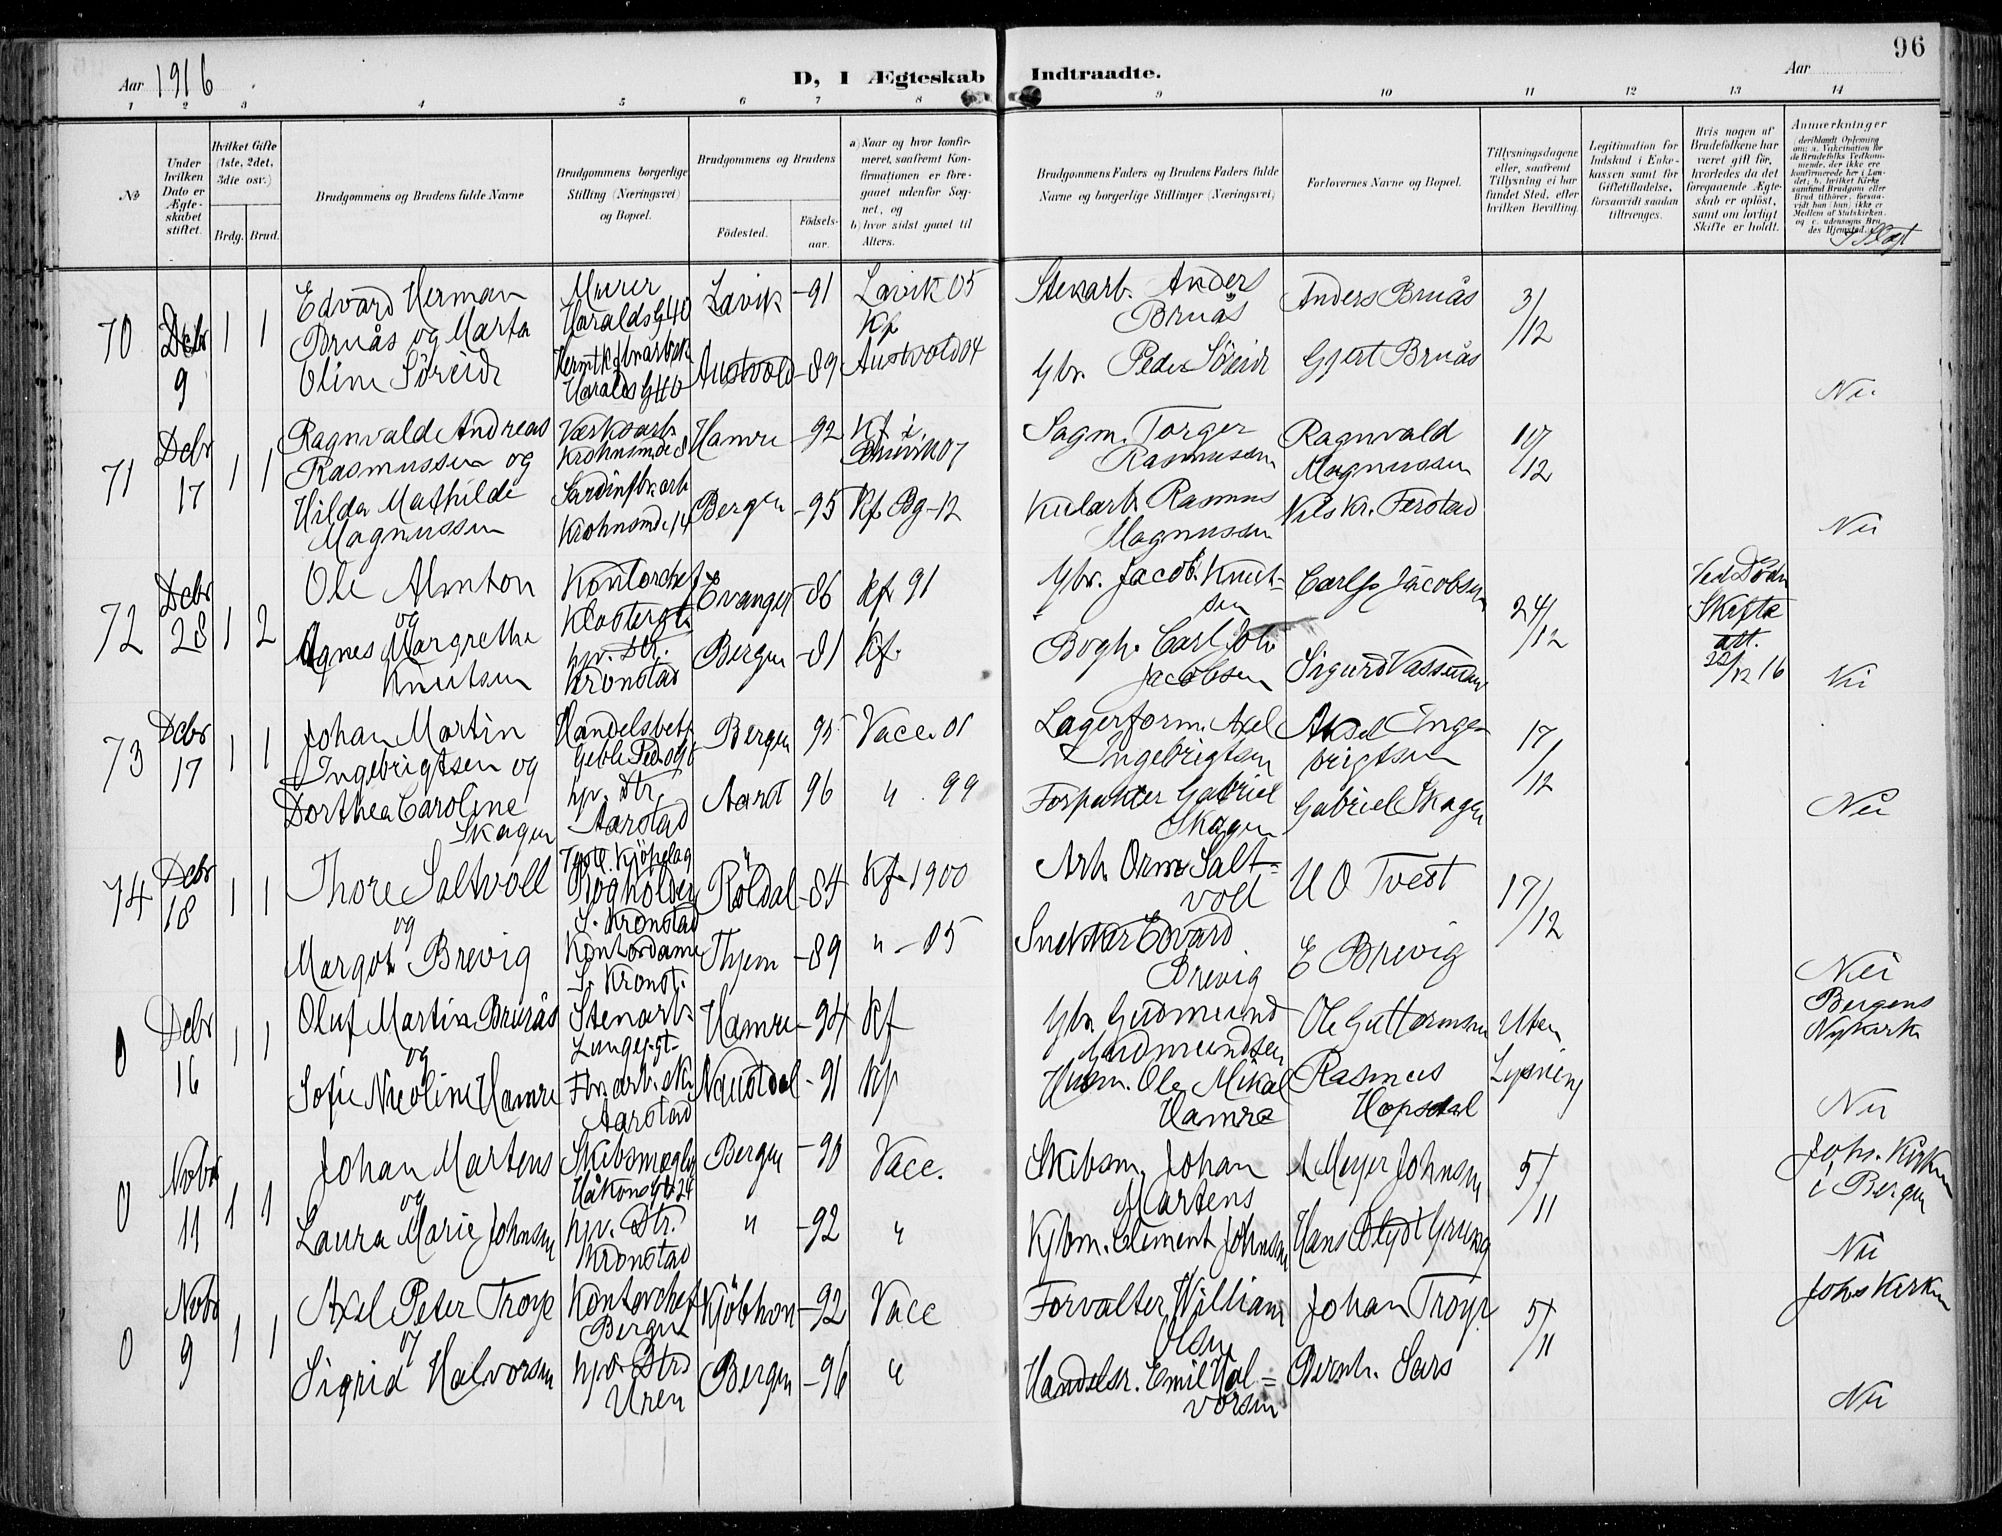 Aar 1916.
D, I Ægteskab Indtraadte.
Aar
96
1 2 3 4 5 6 7 8 9 10 11 12 13 14
No
Under hvilken Dato er Ægteskabet stiftet.
Hvilket Gifte (1ste, 2det, 3die osv.)
Brdg. Brud.
Brudgommens og Brudens fulde Navne
Brudgommens borgerlige Stilling (Næringsvei) og Bopæl.
Brudgommens og Brudens
Fødested.
Fødselsaar.
a) Naar og hvor konfirmeret, saafremt Konfirmationen er foregaaet udenfor Sognet, og
b) hvor sidst gaaet til Alters.
Brudgommens Faders og Brudens Faders fulde Navne og borgerlige Stillinger (Næringsvei)
Forlovernes Navne og Bopæl.
Tillysningsdagene eller, saafremt Tillysning ei har fundet Sted, efter hvilken Bevilling.
Legitimation for Indskud i Enkekassen samt for Giftetilladelse, forsaavidt saadan tiltrænges.
Hvis nogen af Brudefolkene har været gift før, hvorledes da det foregaaende Ægteskab er opløst, samt om lovligt Skifte er holdt.
Anmerkninger
70 Debr 9 1 1
Edvard Herman
Bruås og Marta
Oline Söreide
Murer
Haraldsgt 40
Haraldsgt 40
Lavik -91 Lavik 05
Kf
Austvold -89 Austvold 04
Stenarb. Anders
Bruås
Gbr. Peder Söreide
Anders Bruås
Gjert Bruås
3/12
Nei
71 Debr 17 1 1
Ragnvald Andreas
Rasmussen og
Hilda Mathilde
Magnussen
Værksarb.
Krohnsmde 8
Sardinfbr.arb
Krohnsmd. 14
Hamre -92 Kf i
Bergen -95 Kf Bg -12
Sagm. Torger
Rasmussen
Kularb. Rasmus
Magnussen
Ragnvald
Magnussen
Nils Kr. Ferstad
10/12
Nei
72 Debr 28 1 2
Ole Almton
og
Agnes Margrethe
Knutsen
Kontorchef
Klostergt.
hjv. Dtr.
Kronstad
Evanger -86 Kf 91
Bergen -81 Kf.
Gbr. Jacob Knutsen
Bogh. Carl Joh.
Jacobsen
Carl Jacobsen
Sigurd Vassenden
24/12
Ved Döden
Skifte
att.
22/12 16
Nei
73 Debr 17 1 1
Johan Martin
Ingebrigtsen og
Dorthea Caroline
Skagen
Handelsbetj.
hjv. Dtr.
Aarstad
Bergen 95 Vacc. 01
Aarst 96 " 99
Lagerform. Axel
Ingebrigtsen
Forpakter Gabriel
Skagen
Aksel Ingebrigtsen
Gabriel Skagen
17/12
Nei
74 Debr 18 1 1
Thore Saltvoll
og
Margot Brevig
Bogholder
S. Kronstad
Kontordame
S. Kronst.
Röldal -84 Kf 1900
Thjem -89 " -05
Arb. Orm Saltvoll
Snekker Edvard
Brevig
U O Tvest
E Brevig
17/12
Nei
0 Debr 16 1 1
Oluf Martin Bruås
og
Sofie Nicoline Hamre
Stenarb.
Lungeg.gt.
Aarstad
Hamre -94 Kf
Naustdal -91 Kf
Gbr. Gudmund
Gudmundsen
Husm. Ole Mikal
Hamre
Ole Guttormsen
Rasmus
Hopsdal
Uten
Lysning
Bergens
Nykirke
Nei
0 Novbr 11 1 1
Johan Martens
og
Laura Marie Johnsen
Skibsmægler
Håkonsgt 24
hjv. Dtr.
Kronstad
Bergen -90 Vacc.
" -92 "
Skibsm. Johan
Martens
Kjbm. Clement Johnsen
A Meyer Johnsen
Hans Blydt Grung
5/11
Joh. Kirken
i Bergen
Nei
0 Novbr 9 1 1
Axel Peter Troye
og
Sigrid Halvorsen
Kontorchef
Bergen
hjv. Dtr
Uren
Kjöbhvn -92 Vacc
Bergen -96 "
Forvalter William
Olsen
Handelsr. Emil Halvorsen
Johan Troye
Bernh. Sars
5/11
Johs Kirken
Nei